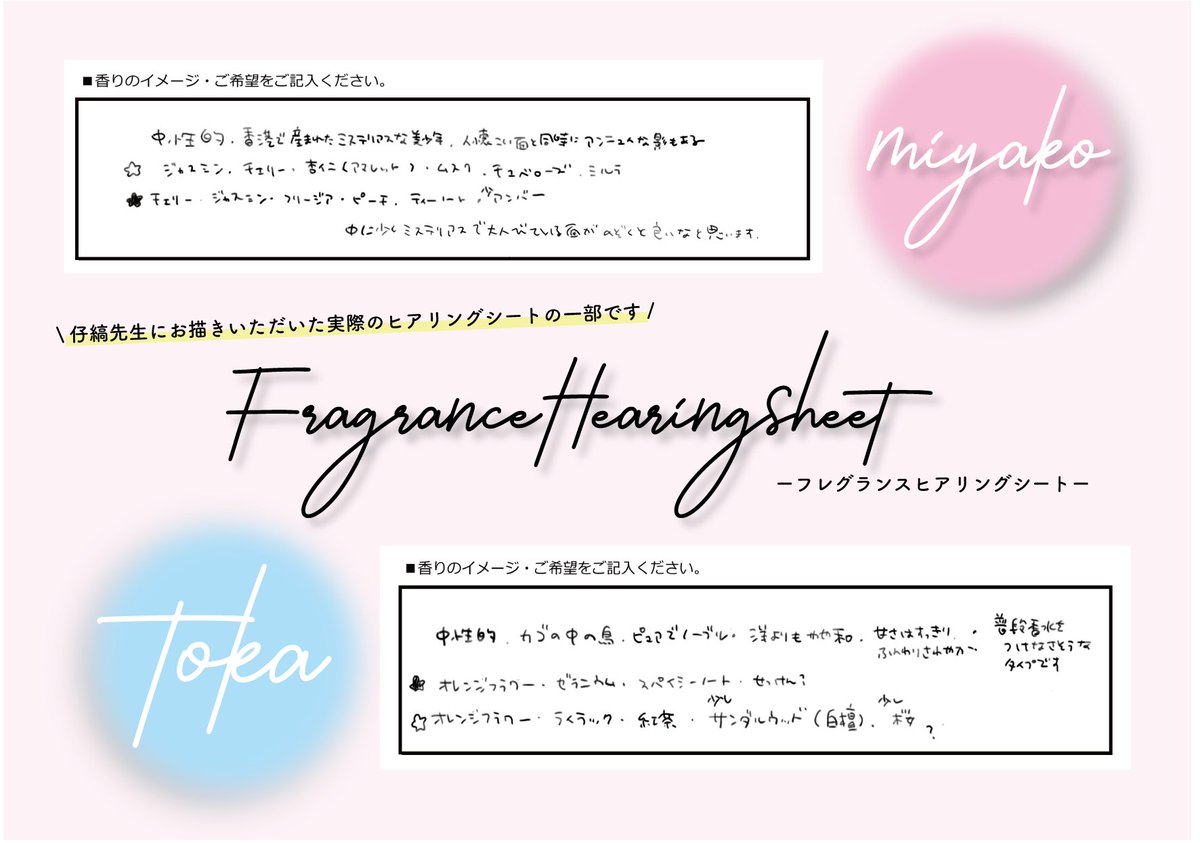 ■香りのイメージ・ご希望をご記入ください。
miyako
中性的、香港で産まれたミステリアスな美少年、人懐こい面と同時にアンニュイな影もある
☆ ジャスミン、チェリー・杏仁(アマレット)・ムスク、チュベローズ、ミルラ
★ チェリー・ジャスミン・フリージア・ピーチ、ティーノート、少アンバー
中に少しミステリアスで大人びている面がのぞくと良いなと思います。
\仔縞先生にお描きいただいた実際のヒアリングシートの一部です/
Fragrance Hearing sheet
ーフレグランスヒアリングシートー
Toka
■香りのイメージ・ご希望をご記入ください。
中性的、カゴの中の鳥、ピュアでノーブル・洋よりもやや和、甘さはすっきり、
ふんわりさわやか〜
普段香水を
つけなさそうな
タイプです
★ オレンジフラワー・ゼラニウム・スパイシーノート・せっけん?
☆ オレンジフラワー・ライラック・紅茶・少しサンダルウッド(白檀)、少し桜?